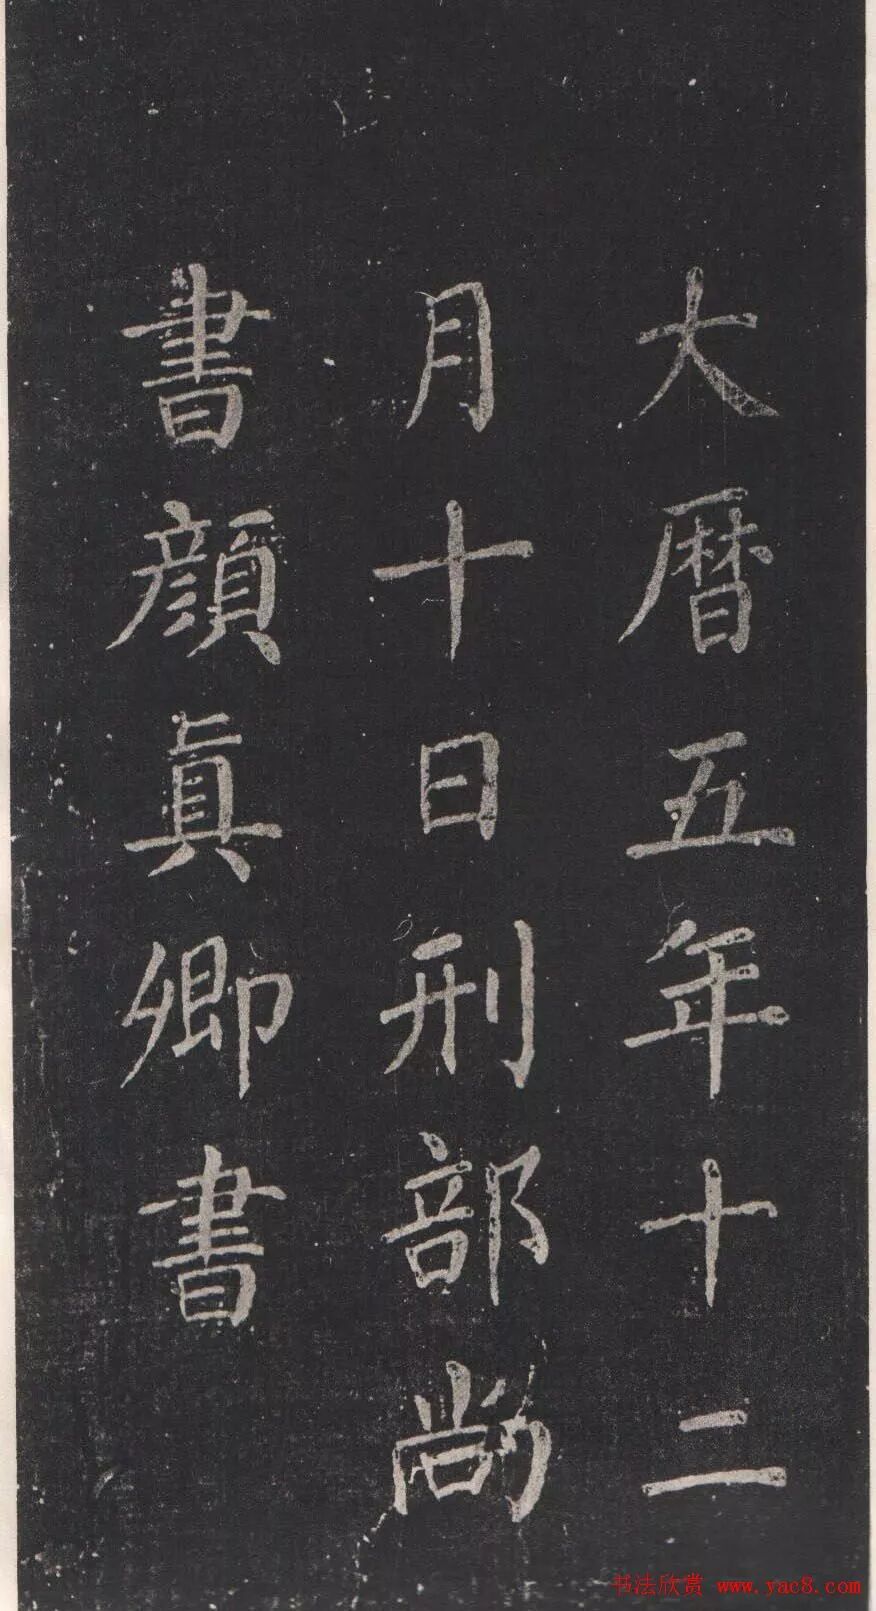 大曆五年十二
月十日刑部尚
書顔真卿書
书法欣赏 www.yac8.com